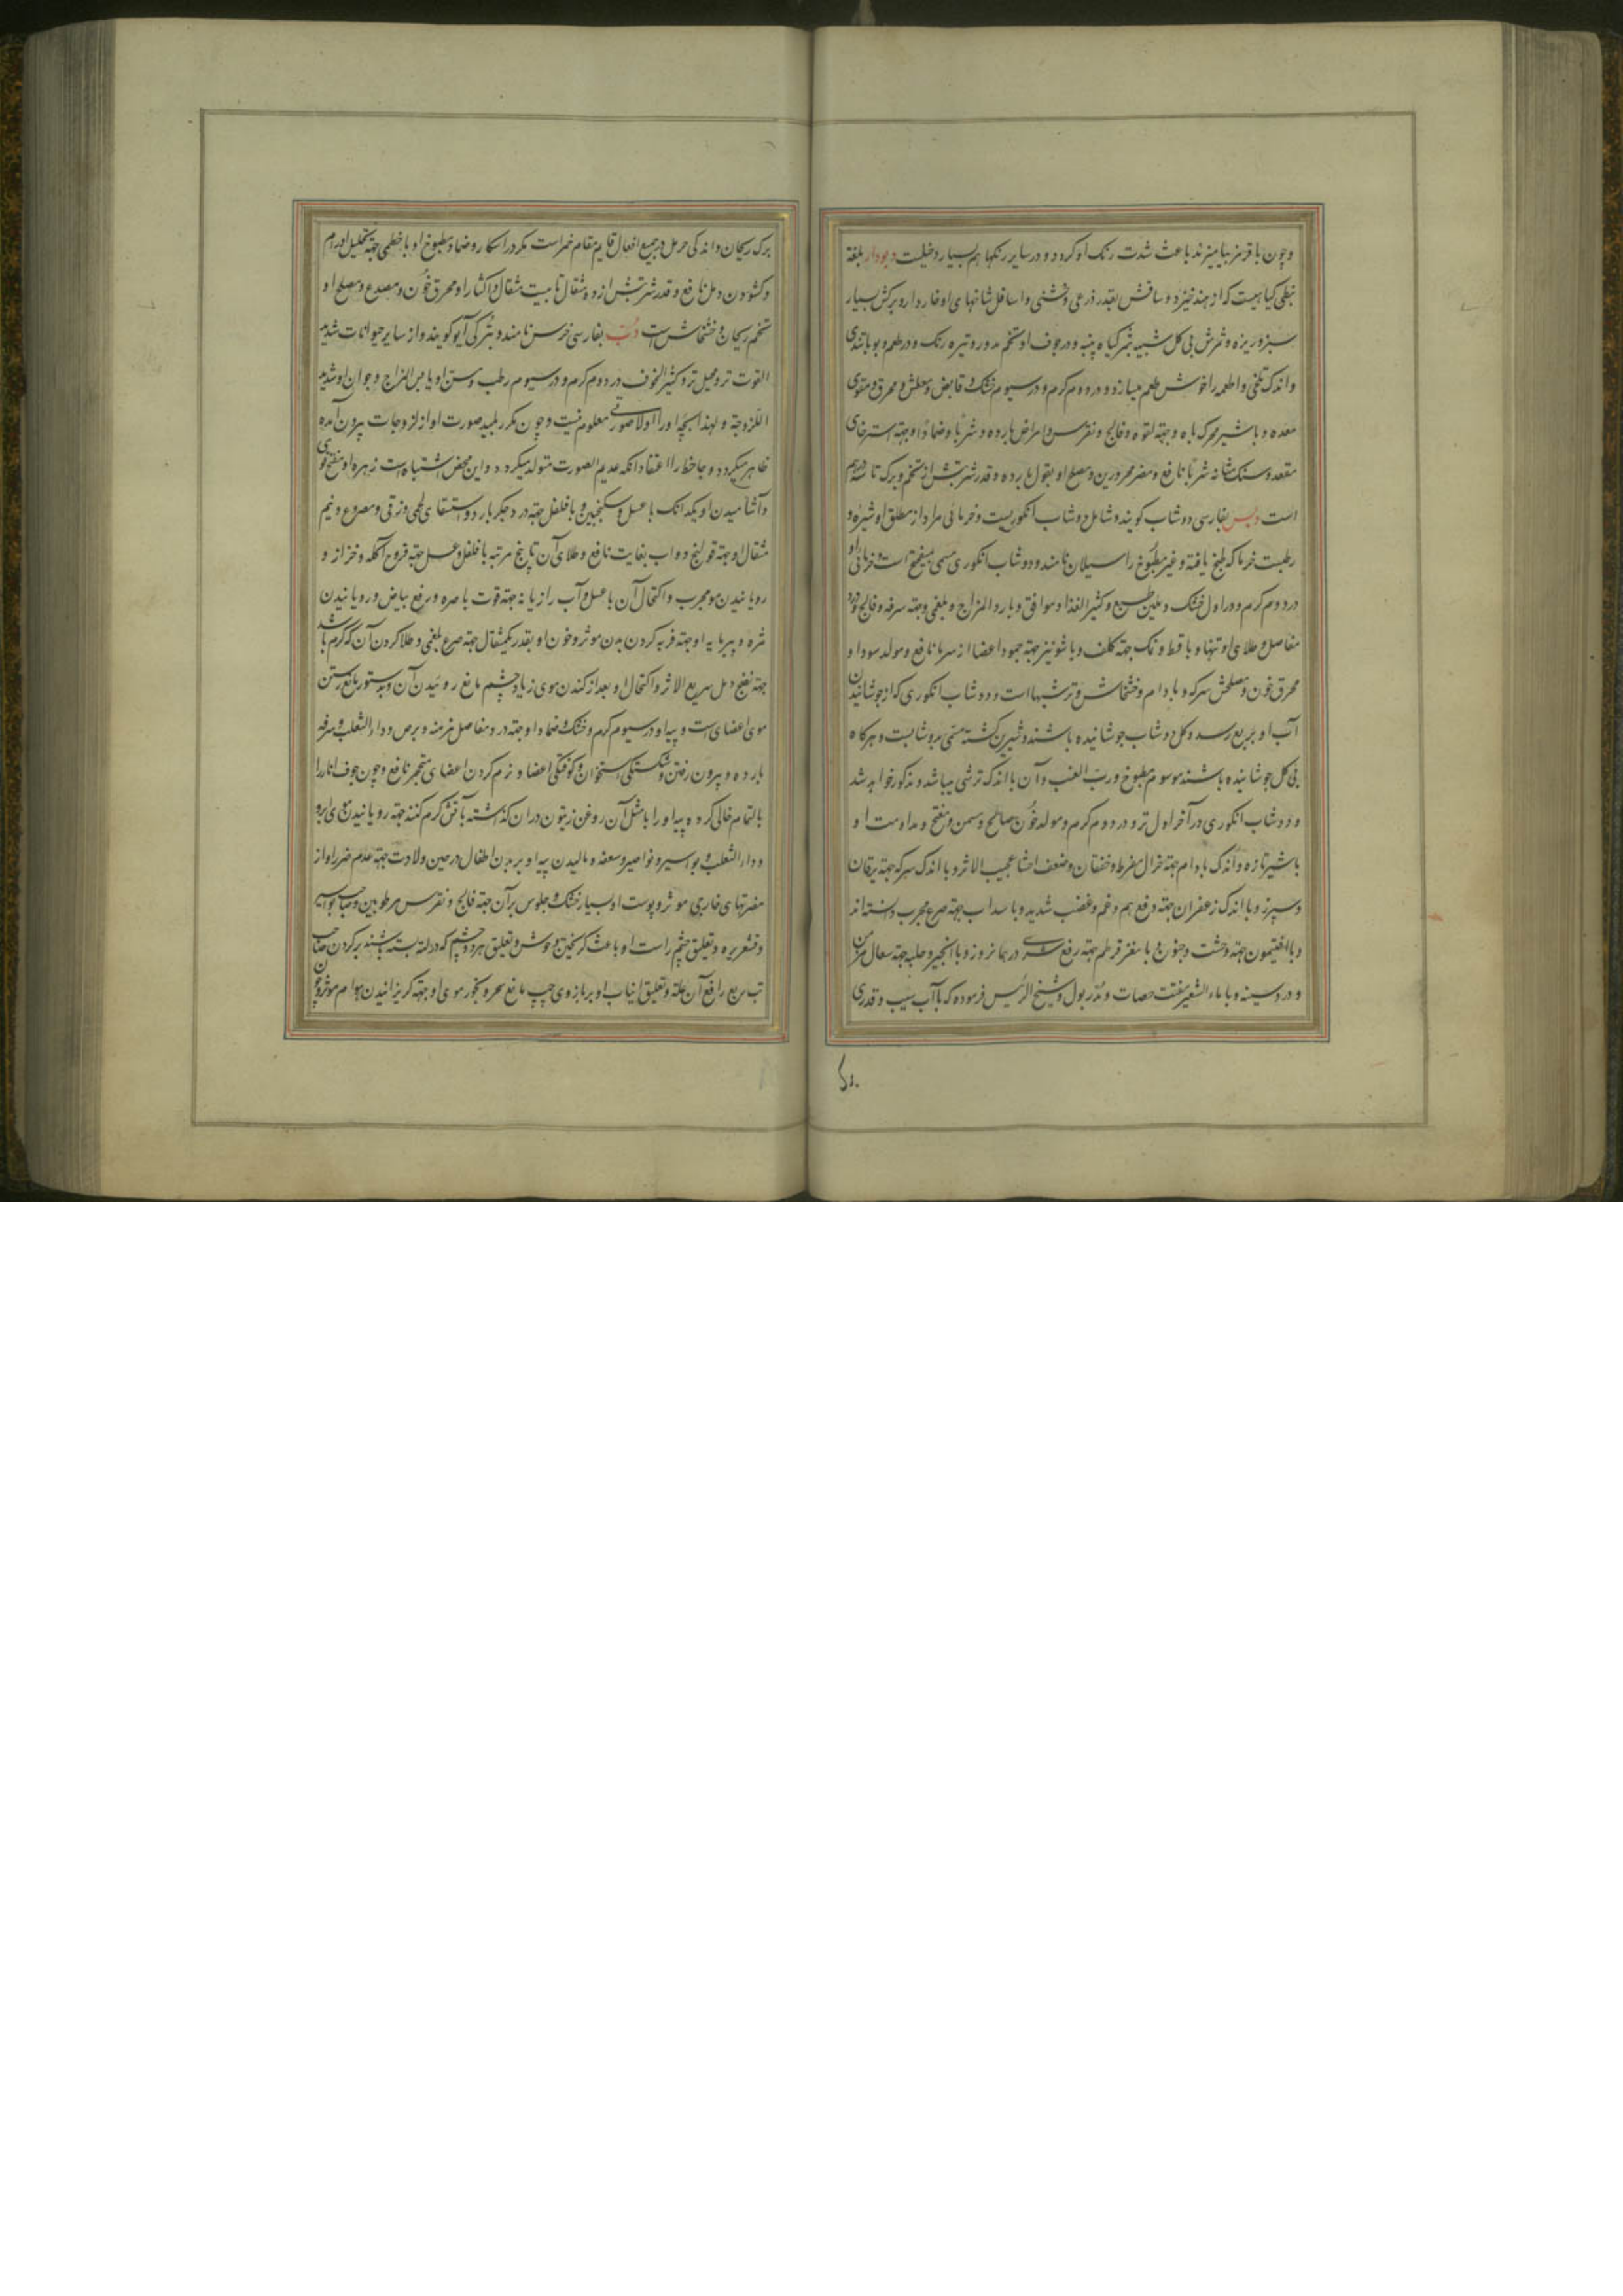 و چون با قرمز بیامیزند باعث شدت رنک او کردد و در سایر رنکها هم بسیار دخیلست دبودار بلغة
نبطی کیاهیست که از هند خیزد و ساقش بقدر ذرعی و خشنی و اسافل شاخهای او خاردار و برکش بسیار
سبز و ریزه و ثمرش بی کل شبیه بثمر کیاه پنبه و در جوف او تخم مدور و تیره رنک و در طعم و بو با تندی
و اندک تلخی و اطعمه را خوش طعم میسازد و در دوم کرم و در سیوم خشک و قابض و معطش و محرق و مقوی
معده و با شیر محرک باه و جهة لقوه و فالج و نقرس و امراض بارده و شربا و ضمادا و جهة استرخای
مقعد و سنک مثانه شربا نافع و مضر محرورین و مصلح او بقول بارده و قدر شربتش از تخم و برک تا سه درهم
است دبس بفارسی دوشاب کویند و شامل دوشاب انکوریست و خرمائی مراد از مطلق او شیره و
رطبست خرما که طبخ یافته و غیر مطبوخ را سیلان نامند و دوشاب انکوری مسمی بمیفختج است و خرمائی او
در دوم کرم و در اول خشک و ملین طبع و کثیر الغذا و موافق و بارد المزاج و بلغمی و جهة سرفه و فالج و درد
مفاصل و طلای او تنها و با قسط و نمک جهة کلف و با شونیز جهة جمود اعضا از سرما نافع و مولد سودا و
محرق خون و مصلحش سرکه و بادام و خشخاش و ترشیها است و دوشاب انکوری که از جوشانیدن
آب او بربع رسد و کل دوشاب جوشانیده باشند و شیرین کشته مسمی بدوشابست و هرکاه
بی کل جوشانیده باشند موسوم بمطبوخ و رب العنب و آن با اندک ترشی میباشد و مذکور خواهد شد
و دوشاب انکوری در آخر اول تر و در دوم کرم و مولد خون صالح و مسمن و مفتح و مداومت او
با شیر تازه و اندک بادام جهة هزال مفرط و خفقان و ضعف احشا عجیب الاثر و با اندک سرکه جهة یرقان
و سپرز و با اندک زعفران جهة دفع هم و غم و غضب شدید و با سداب جهة صرع مجرب دانسته اند
و با افتیمون جهة وحشت و جنون و با مغز قرطم جهة رفع در همانروز و با انجیر و حلبه جهة سعال مزمن
و درد سینه و با ماء الشعیر مفتت حصات و مدر بول و شیخ الرئیس فرموده که با آب سیب و قدری
برک ریحان و اندکی حرمل در جمیع افعال قایم مقام خمر است مکر در اسکار و ضماد مطبوخ او با خطمی جهة تحلیل اورام
و کشودن دمل نافع و قدر شربتش از ده مثقال تا بیست مثقال و اکثار او محرق خون و مصدع و مصلح او
تخم ریحان و خشخاش است دب بفارسی خرس نامند و بترکی آیو کویند و از سایر حیوانات شدید
القوت تر و محیل تر و کثیر الخوف در دوم کرم و در سیوم رطب و مسن او یابس المزاج و جوان او شدید
اللزوجة و لهذا بچه او را اولا صورتی معلوم نیست و چون مکرر بلیسد صورت او از لزوجات بیرون آمده
ظاهر میکردد و جاحظ را اعتقاد انکه عدیم الصورت متولد میکردد و این محض اشتباه است زهره او مفتح قوی
و آشامیدن او یکدانک با عسل و سکنجبین و با فلفل جهة درد جکر بارد و استسقای لحمی و زقی و مصروع و نیم
مثقال او جهة قولنج دواب بغایت نافع و طلای آن تا پنج مرتبه با فلفل و عسل جهة قروح آکله و خراز و
رویانیدن مو مجرب و اکتحال آن با عسل و آب رازیانه جهة قوت باصره و رفع بیاض و رویانیدن
مژه و پیرمایه او جهة فربه کردن بدن موثر و خون او بقدر یکمثقال جهة صرع بلغمی و طلا کردن آن که کرم باشد
جهة نضج دمل سریع الاثر و اکتحال او بعد از کندن موی زیاد چشم مانع روئیدن آن و بدستور مانع رستن
موی اعضای است و پیه او در سیوم کرم و خشک و ضماد او جهة درد مفاصل مزمنه و برص و داء الثعلب و سرفه
بارده و بیرون رفتن و شکستکی استخوان و کوفتکی اعضا و نرم کردن اعضای متحجر نافع و چون جوف انار را
بالتمام خالی کرده پیه او را با مثل آن روغن زیتون در ان کذاشته بآتش کرم کنند جهة رویانیدن موی ابرو
و داء الثعلب و بواسیر و نواصیر و سعفه و مالیدن پیه او بر بدن اطفال در حین ولادت جهة عدم ضرر او از
مضرتهای خارجی موثر و پوست او بسیار خشک و جلوس بر آن جهة فالج و نقرس مرطوبین و صاحب بواسیر
و قشعریره و تعلیق چشم راست او باعث کریختن وحوش و تعلیق هر دو چشم که در لته بسته باشند بر کردن صاحب
تب ربع رافع آن علة و تعلیق انیاب او بر بازوی چپ مانع سحر و بخور موی او جهة کریزانیدن هوام موثر و چون